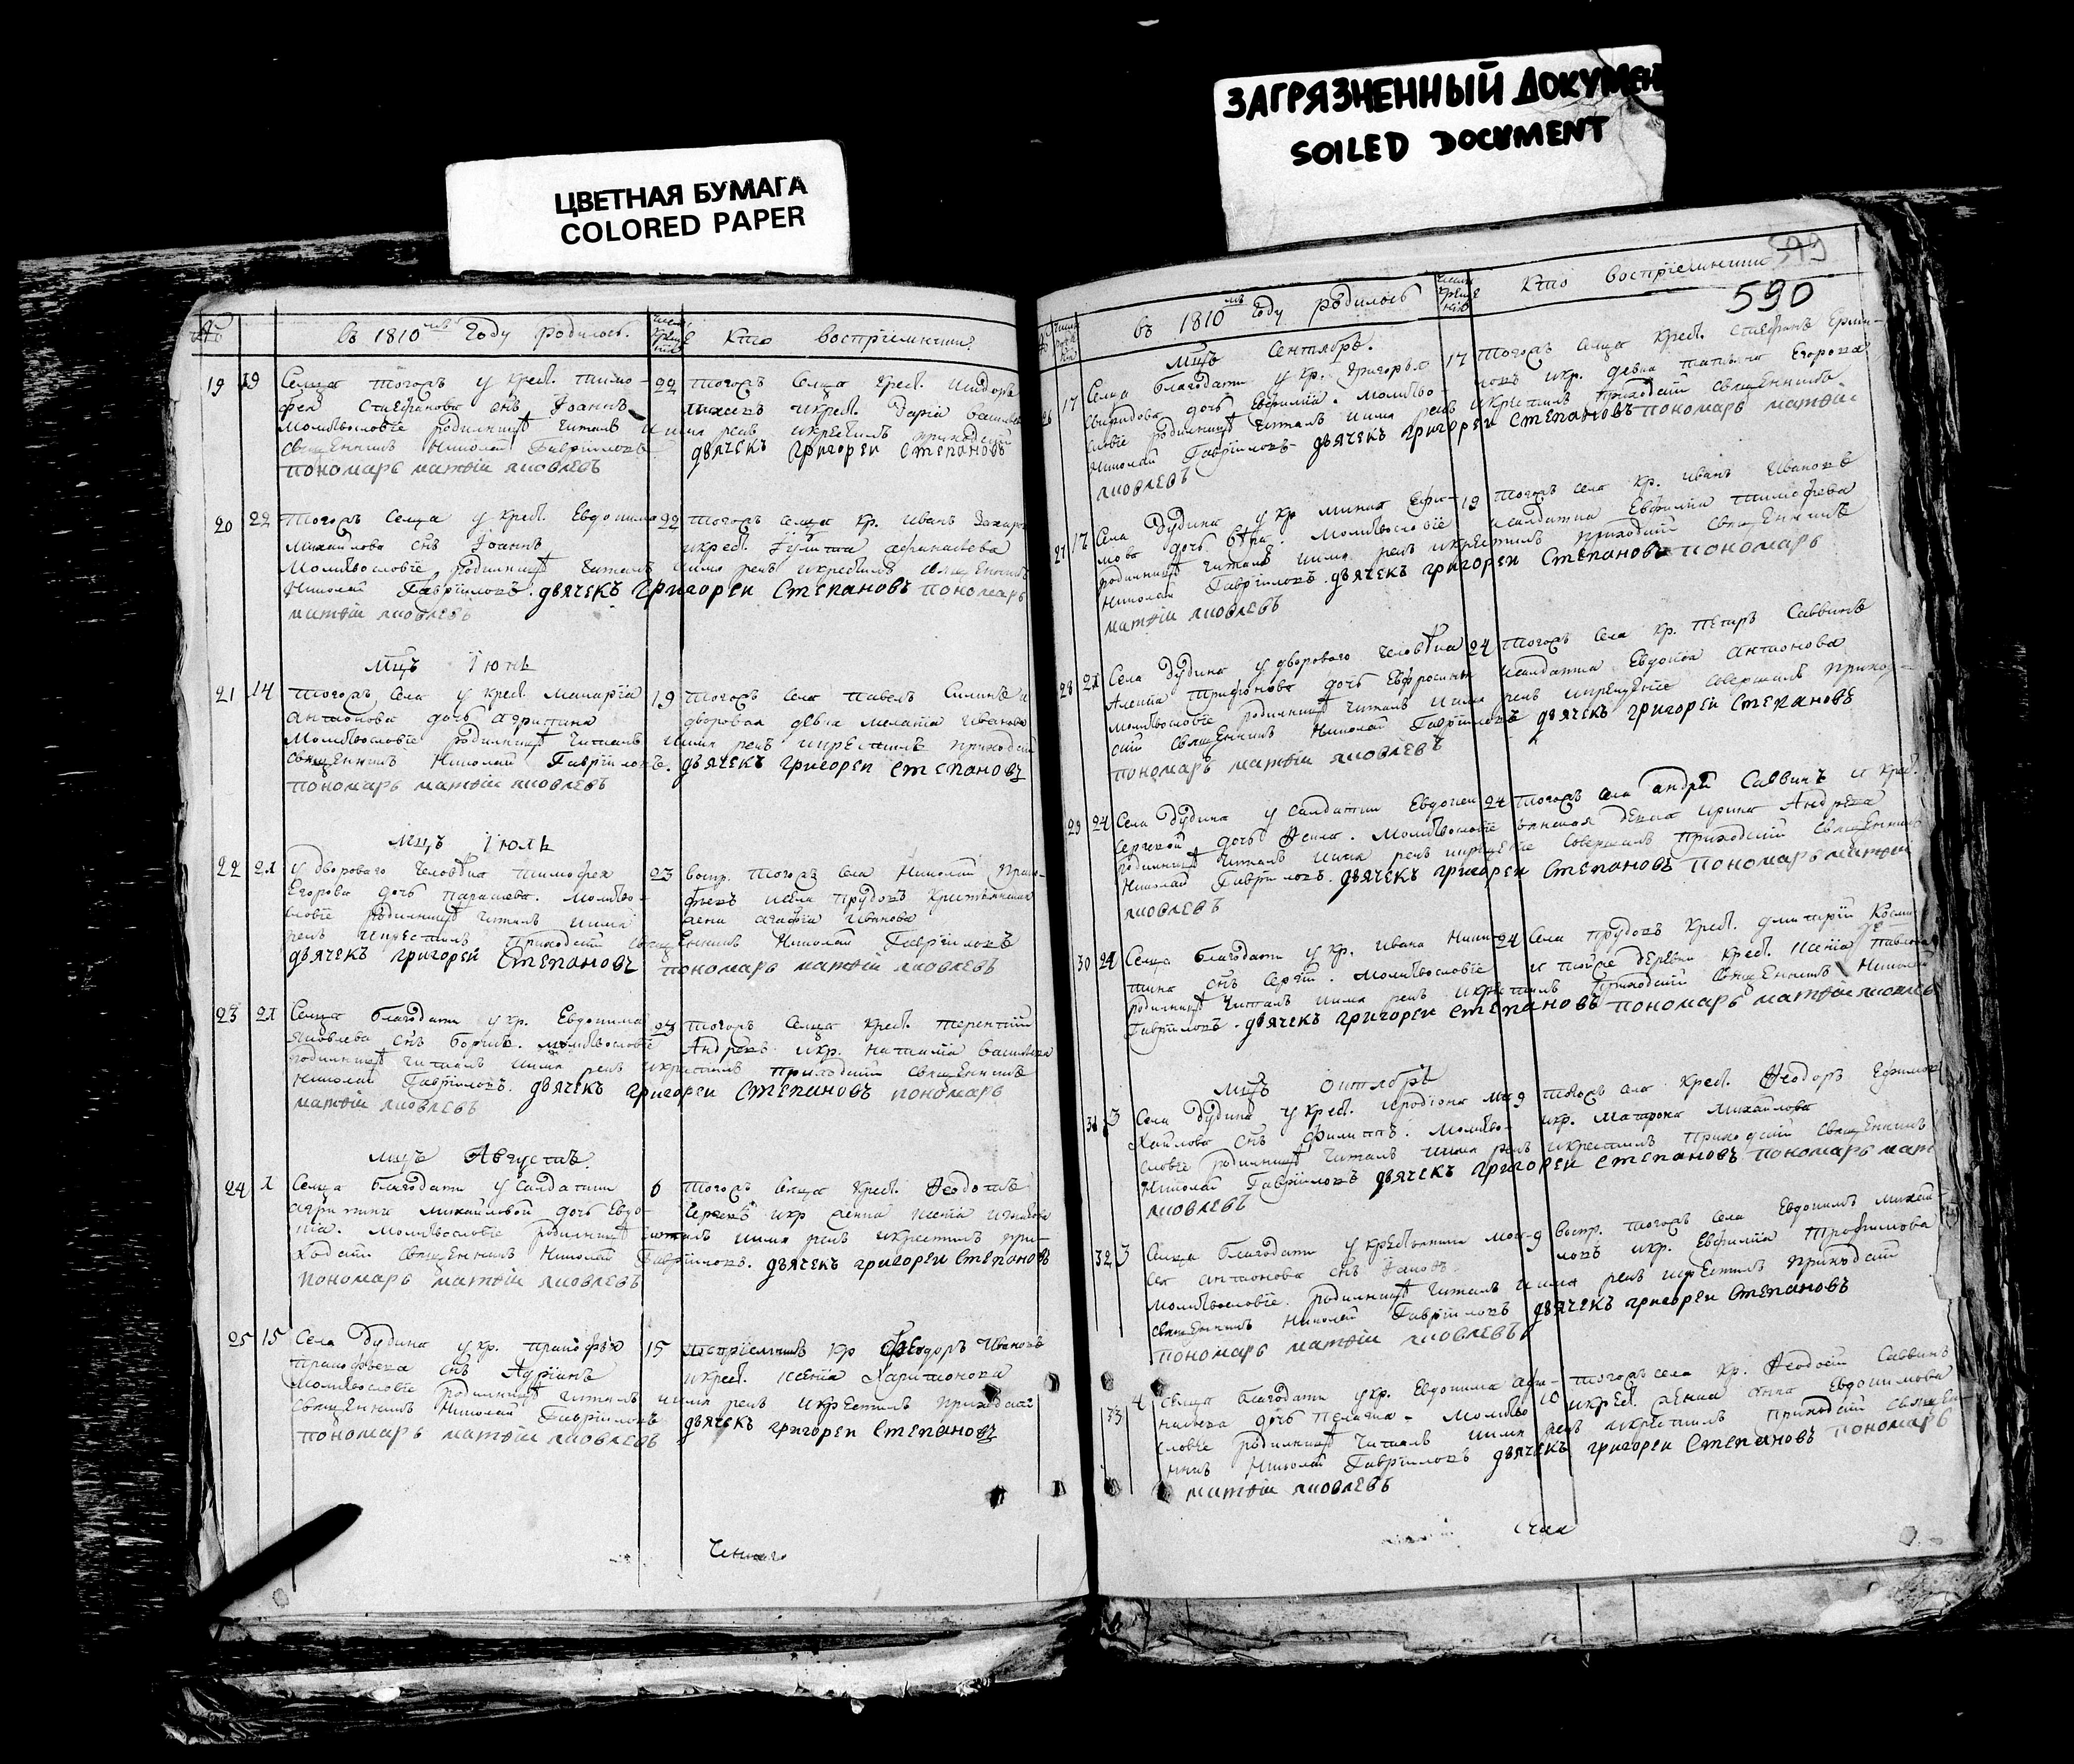 ЦВЕТНАЯ БУМАГА
COLORED PAPER
ЗАГРЯЗНЕННЫЙ ДОКУМЕН
SOILED DOCUMENT
599
590
въ 1810мъ Году родилось
Кто воспрiемники
19 19 Селца тогожъ у крест. Тимо-
фея Стефанова снъ Iоаннъ
Молитвословiе родилницѣ читалъ
священникъ Николай Гаврiиловъ
пономарь матѳiи яковлевъ
22 тогожъ Селца Крест.
икрест. Дарiа
и имя рекъ икрестилъ приходскiй
дьячекъ григореи Степановъ
20 22 Тогожъ Селца у крест. Евдокима 22 тогожъ селца кр. Иванъ
Михайлова снъ Iоаннъ
икрест. Iулитта афанасьева
Молитвословiе родилницѣ читалъ имя рекъ икрестилъ священникъ
Николай Гаврiиловъ. дьячекъ григореи Степановъ пономарь
матѳiи яковлевъ
Мцъ Iюнь
21 14 тогожъ Села у крест. Макарiа
антонова дочь агрипина
Молитвословiе родилницѣ читалъ
священникъ Николай Гаврiиловъ.
пономарь матѳiи яковлевъ
19 тогожъ Села павелъ Силинъ и
дворовая девка мелатiа Иванова
и имя рекъ икрестилъ приходскiй
дьячекъ григореи степановъ
Мцъ Iюль
22 21 у двороваго человѣка тимофея
Егорова дочь параскева. молитво-
словiе родилницѣ читалъ и имя
рекъ икрестилъ приходскiй священникъ Николай Гаврiиловъ
дьячекъ григореи Степановъ пономарь матѳiи яковлевъ
23 воспр. тогожъ села Николай
агафiа Иванова
23 21 Селца благодати у кр. Евдокима
Яковлева снъ борисъ. молитвословiе
родилницѣ читалъ имя рекъ икрестилъ приходскiй священникъ
Николай Гаврiиловъ. дьячекъ григореи Степановъ пономарь
матѳiи яковлевъ
тогожъ Селца крест. терентiй
Андреевъ икр. наталiа васильева
Мцъ Августъ.
24 1 Селца благодати у салдатки
агрипины михайловой дочь Евдо-
кiа. молитвословiе родилницѣ читалъ имя рекъ икрестилъ при-
ходскiй священникъ Николай Гаврiиловъ. дьячекъ григореи Степановъ
пономарь матѳiи яковлевъ
6 тогожъ селца крест. Ѳеодотъ
25 15 Села Дудина у кр. прокофья
прокофьева снъ Адрiанъ
Молитвословiе родилницѣ читалъ
священникъ Николай Гаврiиловъ
пономарь матѳiи яковлевъ
15 воспрiемникъ кр Ѳеодоръ Ивановъ
икрест. ксенiа Харитонова
и имя рекъ икрестилъ приходскiй
дьячекъ григореи Степановъ
въ 1810мъ Году родилось
Кто воспрiемники
Мцъ Сентябрь.
26 17 Селца благодати у кр. Григорья
Свиридова дочь Евфимiа. молитво-
словiе родилницѣ читалъ и имя рекъ икрестилъ приходскiй священникъ
Николай Гаврiиловъ дьячекъ григореи Степановъ пономарь матѳiи
яковлевъ
17 тогожъ селца крест. стефанъ
икр. девка татьяна Егорова
27 17 Села Дудина у кр мины Ефи-
мова дочь вѣра. молитвословiе
родилницѣ читалъ имя рекъ икрестилъ приходскiй священникъ
Николай Гаврiиловъ. дьячекъ григореи Степановъ пономарь
матѳiи яковлевъ
19 тогожъ села кр. иванъ Ивановъ
исалдатка Евфимiа тимофеева
28 21 Села Дудина у двороваго человѣка
Трифонова дочь Евфросинья
молитвословiе родилницѣ читалъ имя рекъ икрещенiе совершалъ приход-
скiй священникъ Николай Гаврiиловъ дьячекъ григореи Степановъ
пономарь матѳiи яковлевъ
24 тогожъ села кр. петръ Саввинъ
исалдатка Евдокiа антонова
29 24 Села Дудина у салдатки Евдокеи
Сергеевой дочь Ѳекла. молитвословiе
родилницѣ читалъ имя рекъ икрещенiе совершалъ приходскiй священникъ
Николай Гаврiиловъ. дьячекъ григореи Степановъ пономарь матѳiи
яковлевъ
24 тогожъ села андрей Саввинъ и крест.
девка ирина Андреева
30 24 Селца благодати у кр. Ивана Ники-
тина снъ Сергiй. молитвословiе
родилницѣ читалъ имя рекъ икрестилъ приходскiй священникъ Николай
Гаврiиловъ. дьячекъ григореи Степановъ пономарь матѳiи яковлевъ
24 Села прудовъ крест. дмитрiй
и тойже деревни крест. ксенiа павлова
Мцъ Октябрь
31 3 Села Дудина у крест. Иродiона ми-
хайлова снъ филиппъ. молитво-
словiе родилницѣ читалъ имя рекъ икрестилъ приходскiй священникъ
Николай Гаврiиловъ дьячекъ григореи степановъ пономарь мат
яковлевъ
9 тогожъ села крест. Ѳеодоръ Ефимовъ
икр. Матрона михайлова
32 3 Селца благодати у крестьянина мои-
сея антонова снъ
молитвословiе родилницѣ читалъ и имя рекъ икрестилъ приходскiй
священникъ Николай Гаврiиловъ дьячекъ григореи Степановъ
пономарь матѳiи яковлевъ
9 воспр. тогожъ села Евдокимъ михай-
ловъ икр. Евфимiа Трофимова
33 4 Селца благодати у кр. Евдокима афа-
насьева дочь пелагиа. молитво-
словiе родилницѣ читалъ имя рекъ икрестилъ приходскiй священ-
никъ Николай Гаврiиловъ дьячекъ григореи Степановъ пономарь
матѳiи яковлевъ
10 тогожъ села кр. Ѳеодосiй Саввинъ
икрест. анна Евдокимова